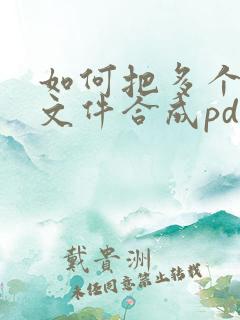 如何把多个
文件合成pd
戴貴洲
未经同意禁止转载